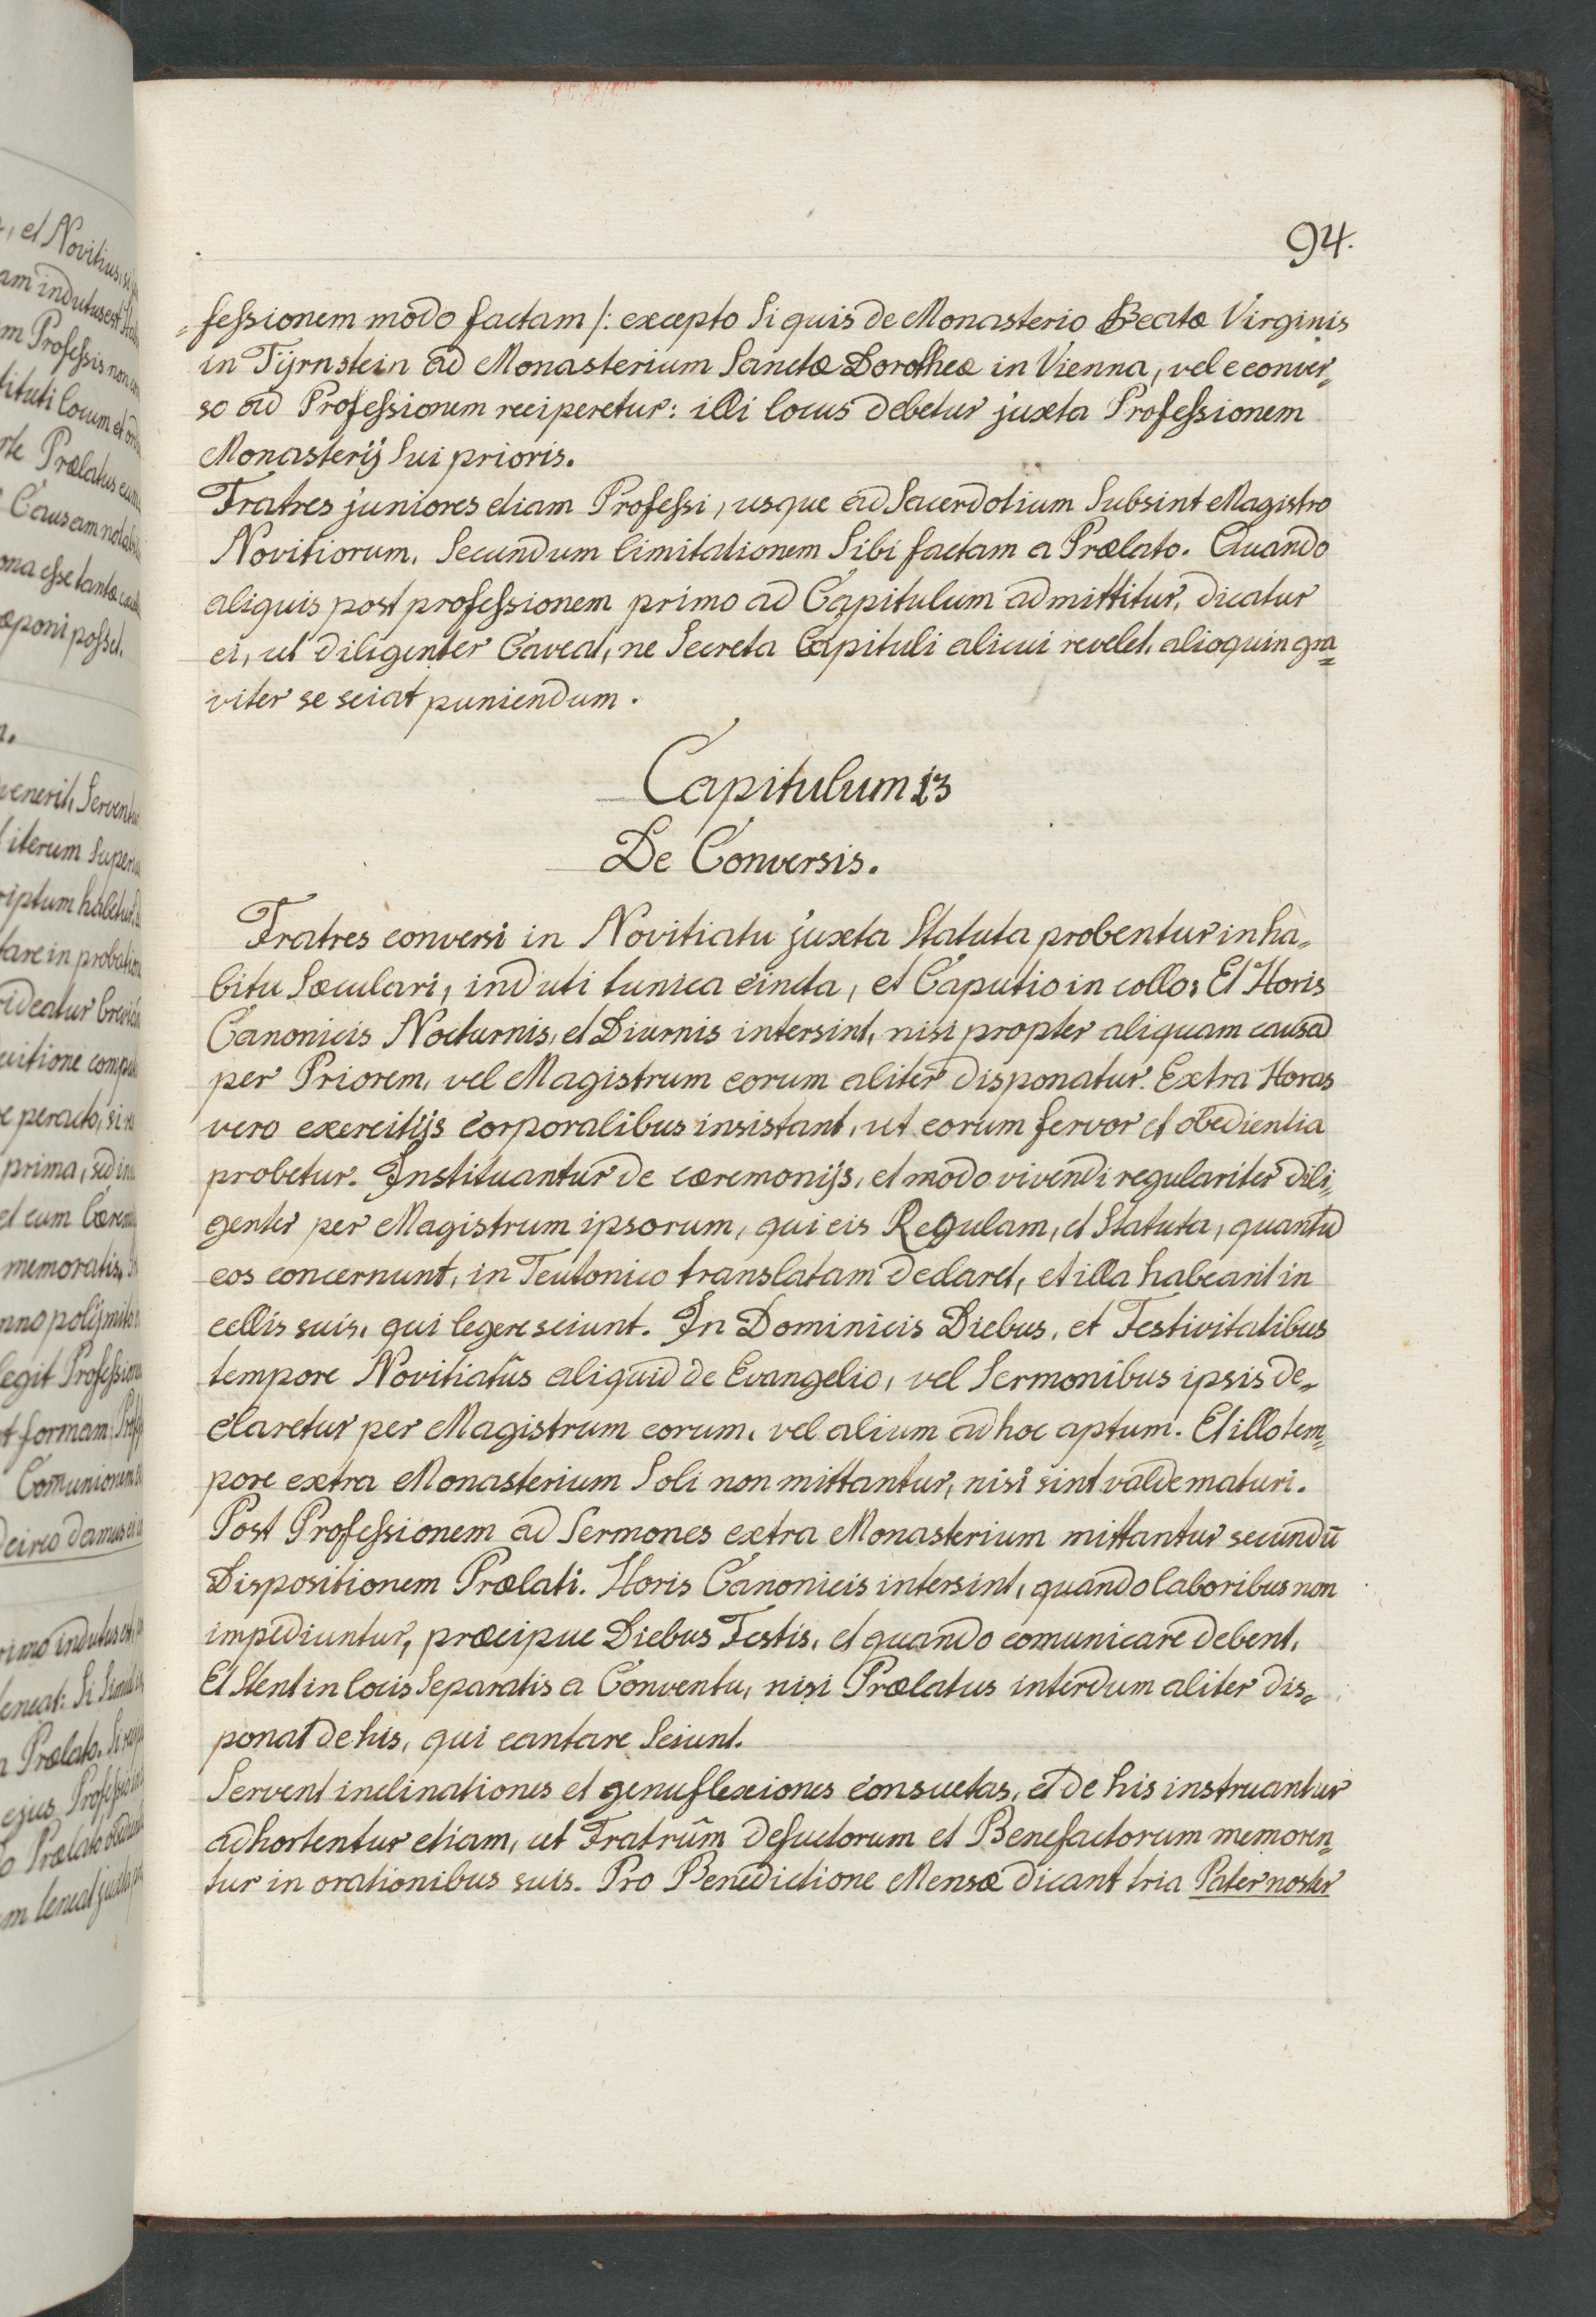 94.
=fessionem modo factam /: excepto Si quis de Monasterio Beatæ Virginis
in Tÿrnstein ad Monasterium Sanctæ Dorotheæ in Vienna, vel e conver=
so ad Professionem reciperetur: illi locus debetur juxta Professionem
Monasterij Sui prioris.
Fratres juniores etiam Professi, usque ad Sacerdotium Subsint Magistro
Novitiorum, Secundum limitationem Sibi factam a Prælato. Quando
aliquis post professionem primo ad Capitulum admittitur, dicatur
ei, ut diligenter Caveat, ne Secreta Capituli alicui revelet, alioquin gra=
viter se sciat puniendum.
Capitulum 13
De Conversis.
Fratres conversi in Novitiatu juxta Statuta probentur in ha=
bitu Sæculari, induti tunica cincta, et Caputio in collo; Et Horis
Canonicis Nocturnis, et Diurnis intersint, nisi propter aliquam causã
per Priorem, vel Magistrum eorum aliter disponatur. Extra Horas
vero exercitijs corporalibus insistant, ut eorum fervor et obedientia
probetur. Instituantur de cæremonijs, et modo vivendi regulariter dili=
genter per Magistrum ipsorum, qui eis Regulam, et Statuta, quantũ
eos concernunt, in Teutonico translatam declaret, et illa habeant in
cellis suis, qui legere sciunt. In Dominicis Diebus, et Festivitatibus
tempore Novitiatûs aliquid de Evangelio, vel Sermonibus ipsis de=
claretur per Magistrum eorum, vel alium ad hoc aptum. Et illo tem=
pore extra Monasterium Soli non mittantur, nisi sint valde maturi.
Post Professionem ad Sermones extra Monasterium mittantur secundũ
Dispositionem Prælati. Horis Canonicis intersint, quando laboribus non
impediuntur, præcipue Diebus Festis, et quando comunicare debent.
Et Stent in locis Separatis a Conventu, nisi Prælatus interdum aliter dis=
ponat de his, qui cantare Sciunt.
Servent inclinationes et genuflexiones consuetas, et de his instruantur
adhortentur etiam, ut Fratrũm defuctorum et Benefactorum memoren=
tur in orationibus suis. Pro Benedictione Mensæ dicant tria Pater noster